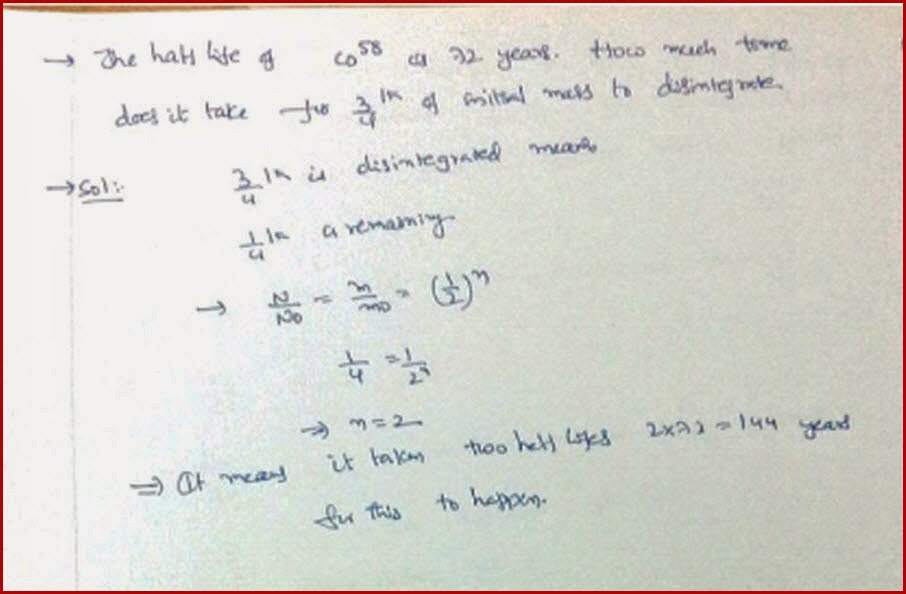 → The half life of Co^58 is 72 years. How much time
does it take for 3/4 th of initial mass to disintegrate.
→ Sol:- 3/4 th is disintegrated means
1/4 th a remaining
→ N/No = m/mo = (1/2)^n
1/4 = 1/2^n
⇒ n = 2
⇒ It means it taken two half lifes 2x72 = 144 years
for this to happen.